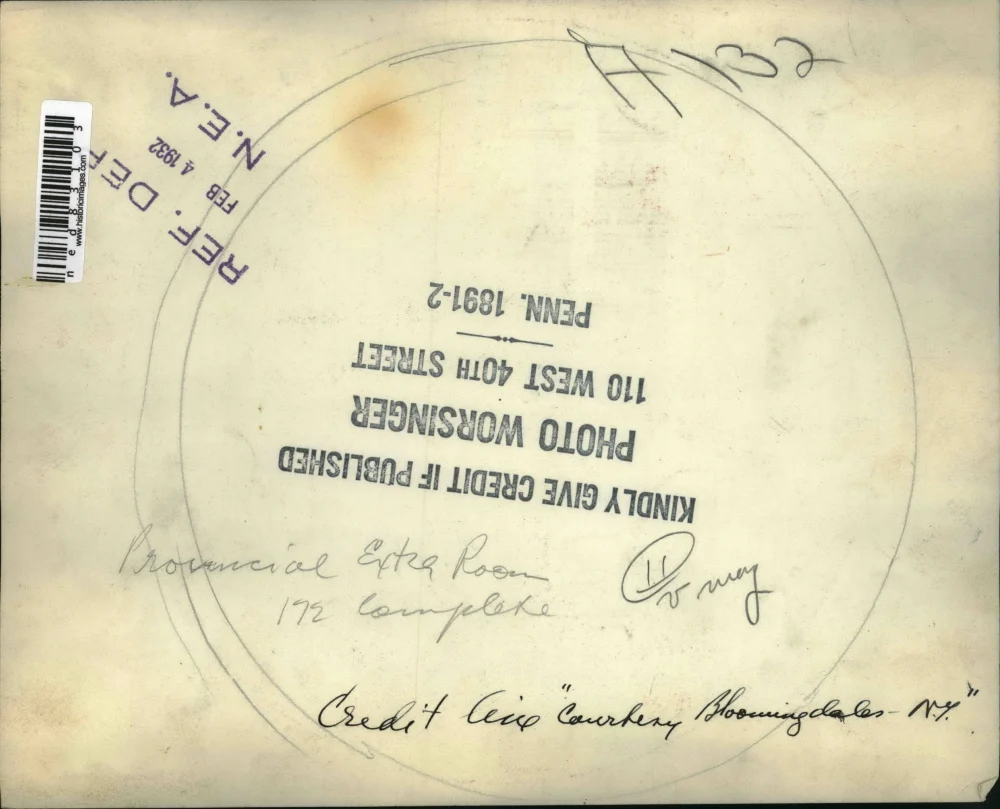 H 132
REF. DEP
FEB 4 1932
N.E.A.
ned83103
www.historicimages.com
KINDLY GIVE CREDIT IF PUBLISHED
PHOTO WORSINGER
110 WEST 40TH STREET
PENN. 1891-2
Provincial Extra Room
172 Complete
11
may
Credit Line "Courtesy Bloomingdales - N.Y."